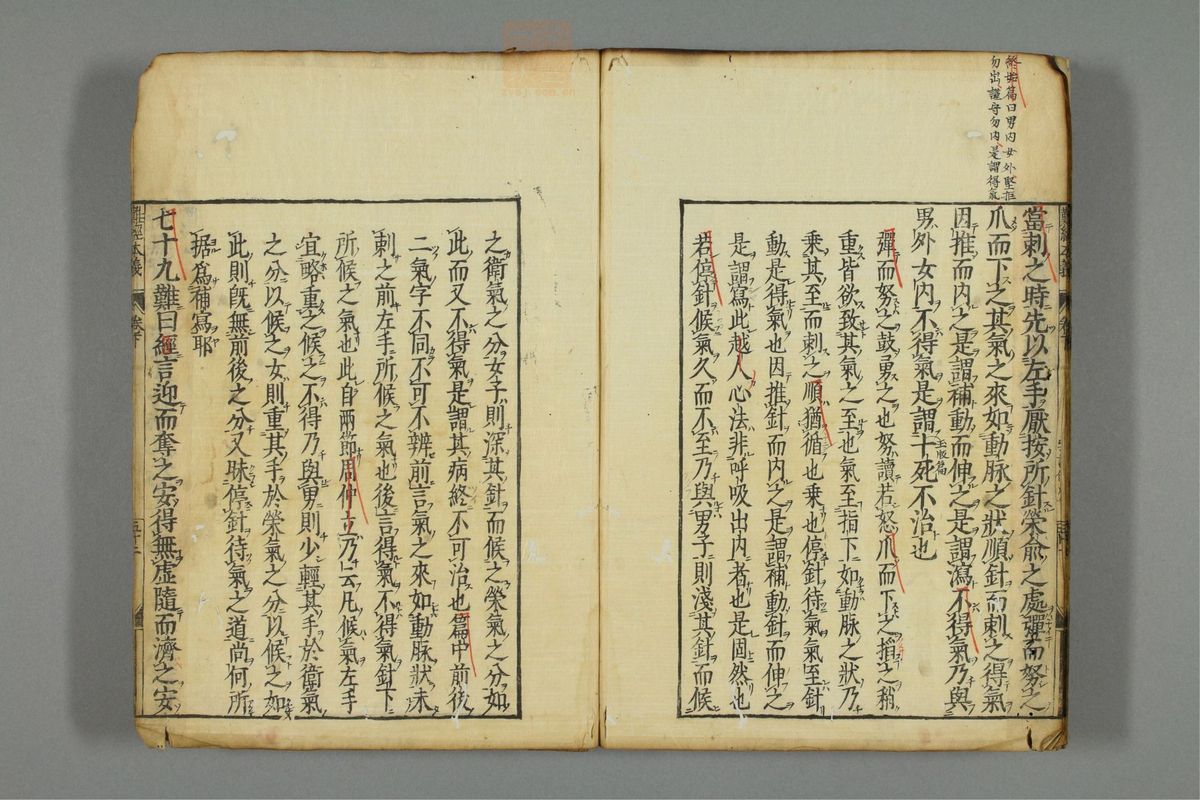 終始篇曰男内女外堅拒
勿出謹守勿内是謂得氣
當刺之時先以左手厭按所針榮兪之處彈而努之
爪而下之其氣之來如動脉之狀順針而刺之得氣
因推而内之是謂補動而伸之是謂瀉不得氣乃與
男外女内不得氣是謂十死不治也
玉版篇
彈而努之鼓勇之也努讀若怒爪而下之掐之稍
重皆欲致其氣之至也氣至指下如動脉之狀乃
乘其至而刺之順猶循也乗也停針待氣氣至針
動是得氣也因推針而内之是謂補動針而伸之
是謂瀉此越人心法非呼吸出内者也是固然也
若停針候氣久而不至乃與男子則淺其針而候
之衛氣之分女子則深其針而候之榮氣之分如
此而又不得氣是謂其病終不可治也篇中前後
二氣字不同不可不辨前言氣之來如動脉狀未
刺之前左手所候之氣也後言得氣不得氣針下
所候之氣也此自兩節周仲立乃云凡候氣左手
宜略重之候之不得乃與男則少輕其手於衛氣
之分以候之女則重其手於榮氣之分以候之如
此則旣無前後之分又昧停針待氣之道尚何所
据爲補寫耶
七十九難曰經言迎而奪之安得無虚隨而濟之安
難經本義
卷下
五十二